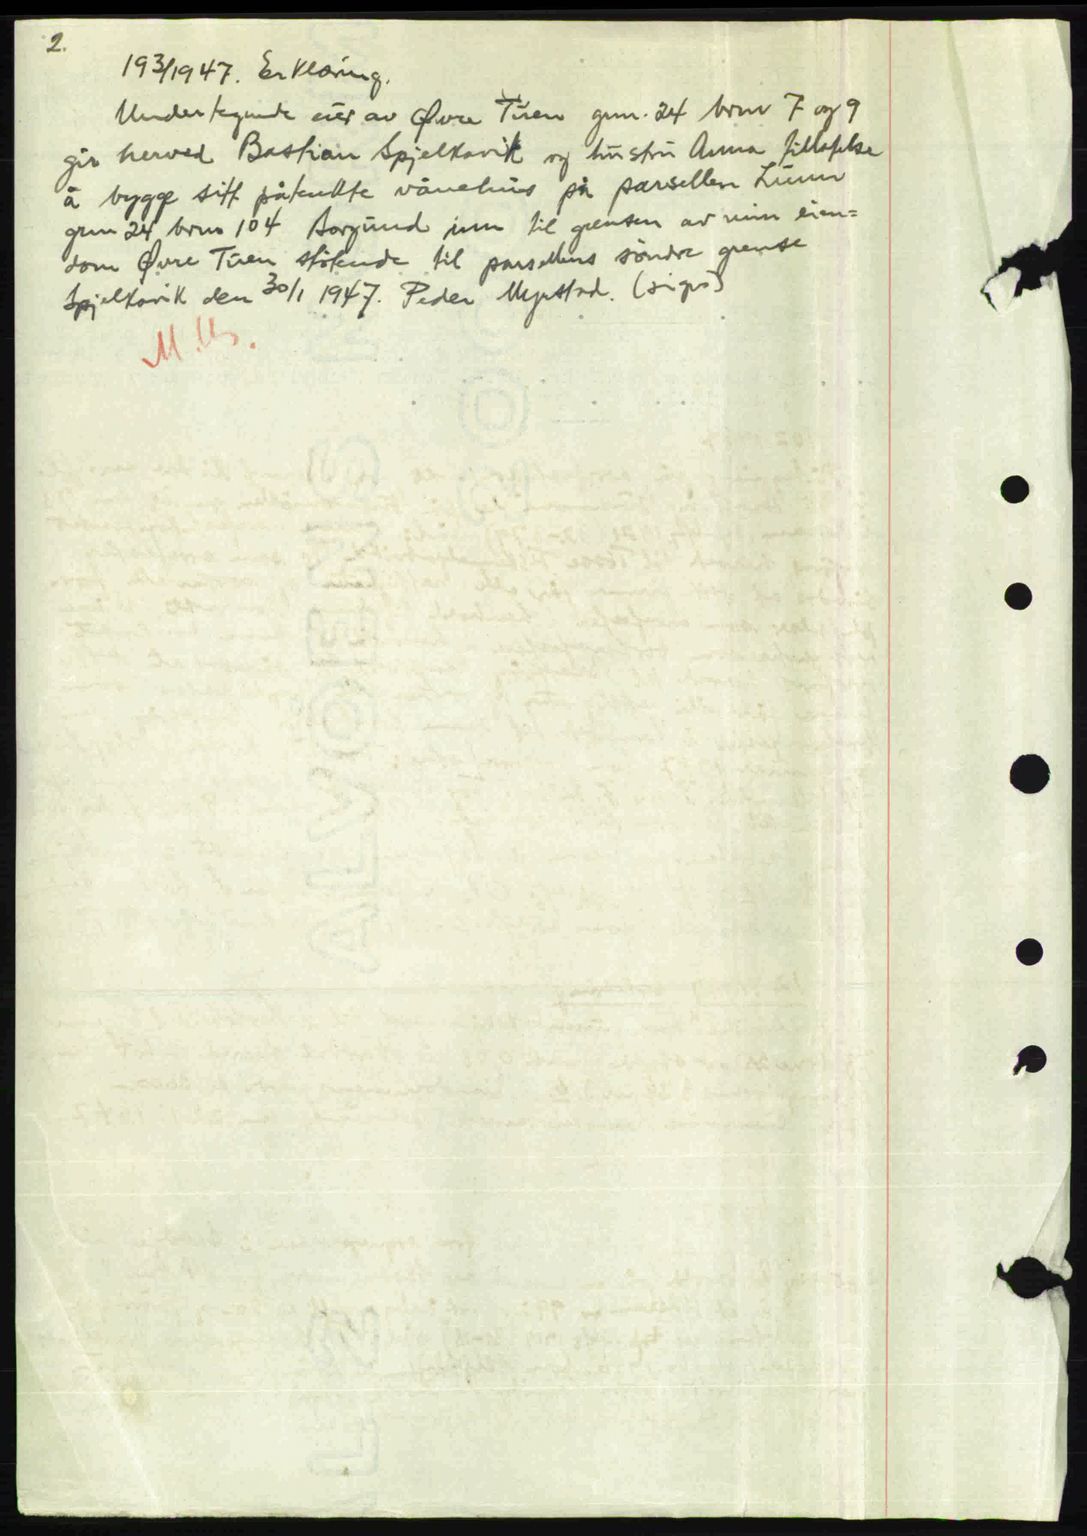 2.
193/1947. Erklæring.
Undertegnede eier av Øvre Tuen gnr. 24 brnr 7 og 9
gir herved Bastian Spjelkavik og hustru Anna tillatelse
å bygge sitt påtenkte vånehus på parsellen Lunn
gnr 24 brnr 104 Borgund inn til grensen av min eien=
dom Øvre Tuen støtende til parsellens söndre grense
Spjelkavik den 30/1 1947. Peder Myrstad. (sign)